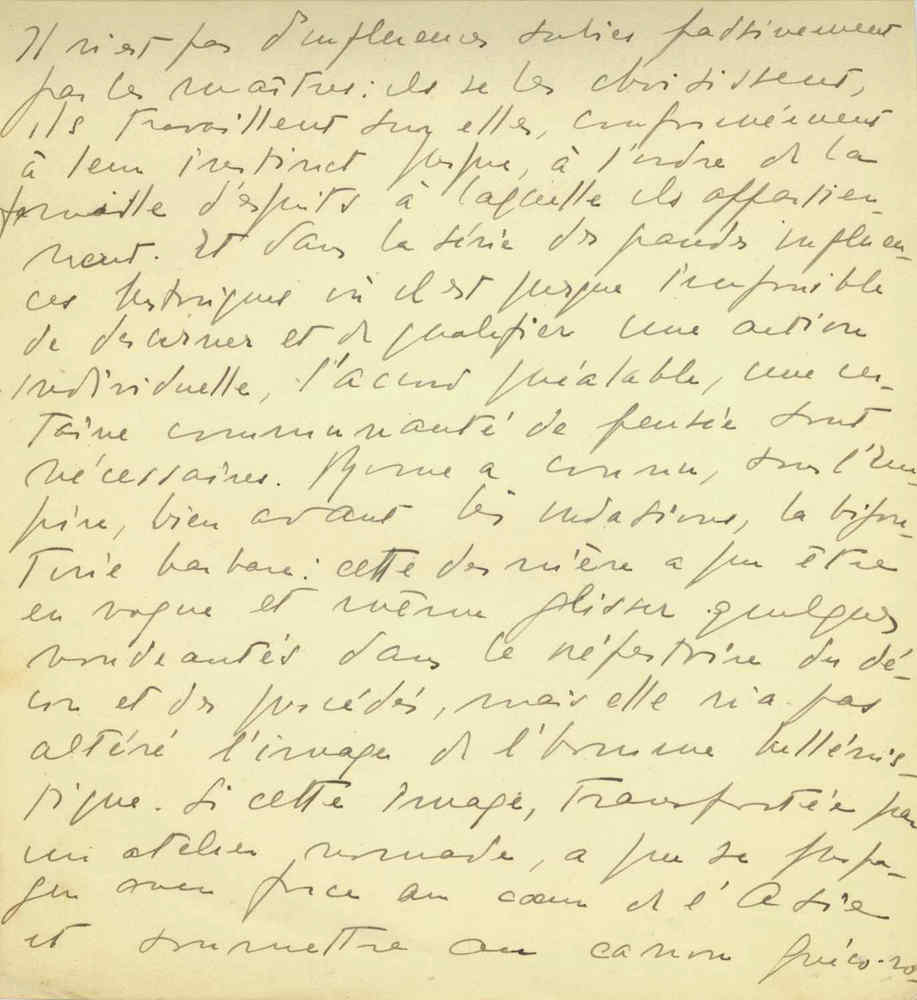 Il n'est pas d'influences subies passivement
par les maîtres: ils se les choisissent,
ils travaillent sur elles, conformément
à leur instinct jusque, à l'ordre de la
famille d'esprits à laquelle ils appartien-
nent. Et dans la série des grandes influen-
ces historiques où il est presque impossible
de discerner et de qualifier une action
individuelle, l'accord préalable, une cer-
taine communauté de pensée sont
nécessaires. Rome a connu, sous l'Em-
pire, bien avant les invasions, la bijou-
terie barbare: cette dernière a pu être
en vogue et même glisser quelques
nouveautés dans le répertoire du dé-
cor et des procédés, mais elle n'a pas
altéré l'image de l'homme hellénis-
tique. Si cette image, transportée par
un atelier nomade, a pu se propa-
ger avec force au cœur de l'Asie
et soumettre au canon gréco-ro-